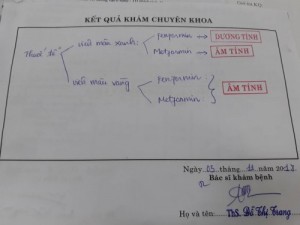 KẾT QUẢ KHÁM CHUYÊN KHOA
Thuốc "tê"
viên màu xanh: Penformin → DƯƠNG TÍNH
Metformin → ÂM TÍNH
viên màu vàng Penformin
Metformin
ÂM TÍNH
Ngày 05 tháng 12 20
Bác sĩ khám bệnh
Họ và tên: ThS. Đỗ Thị Trang